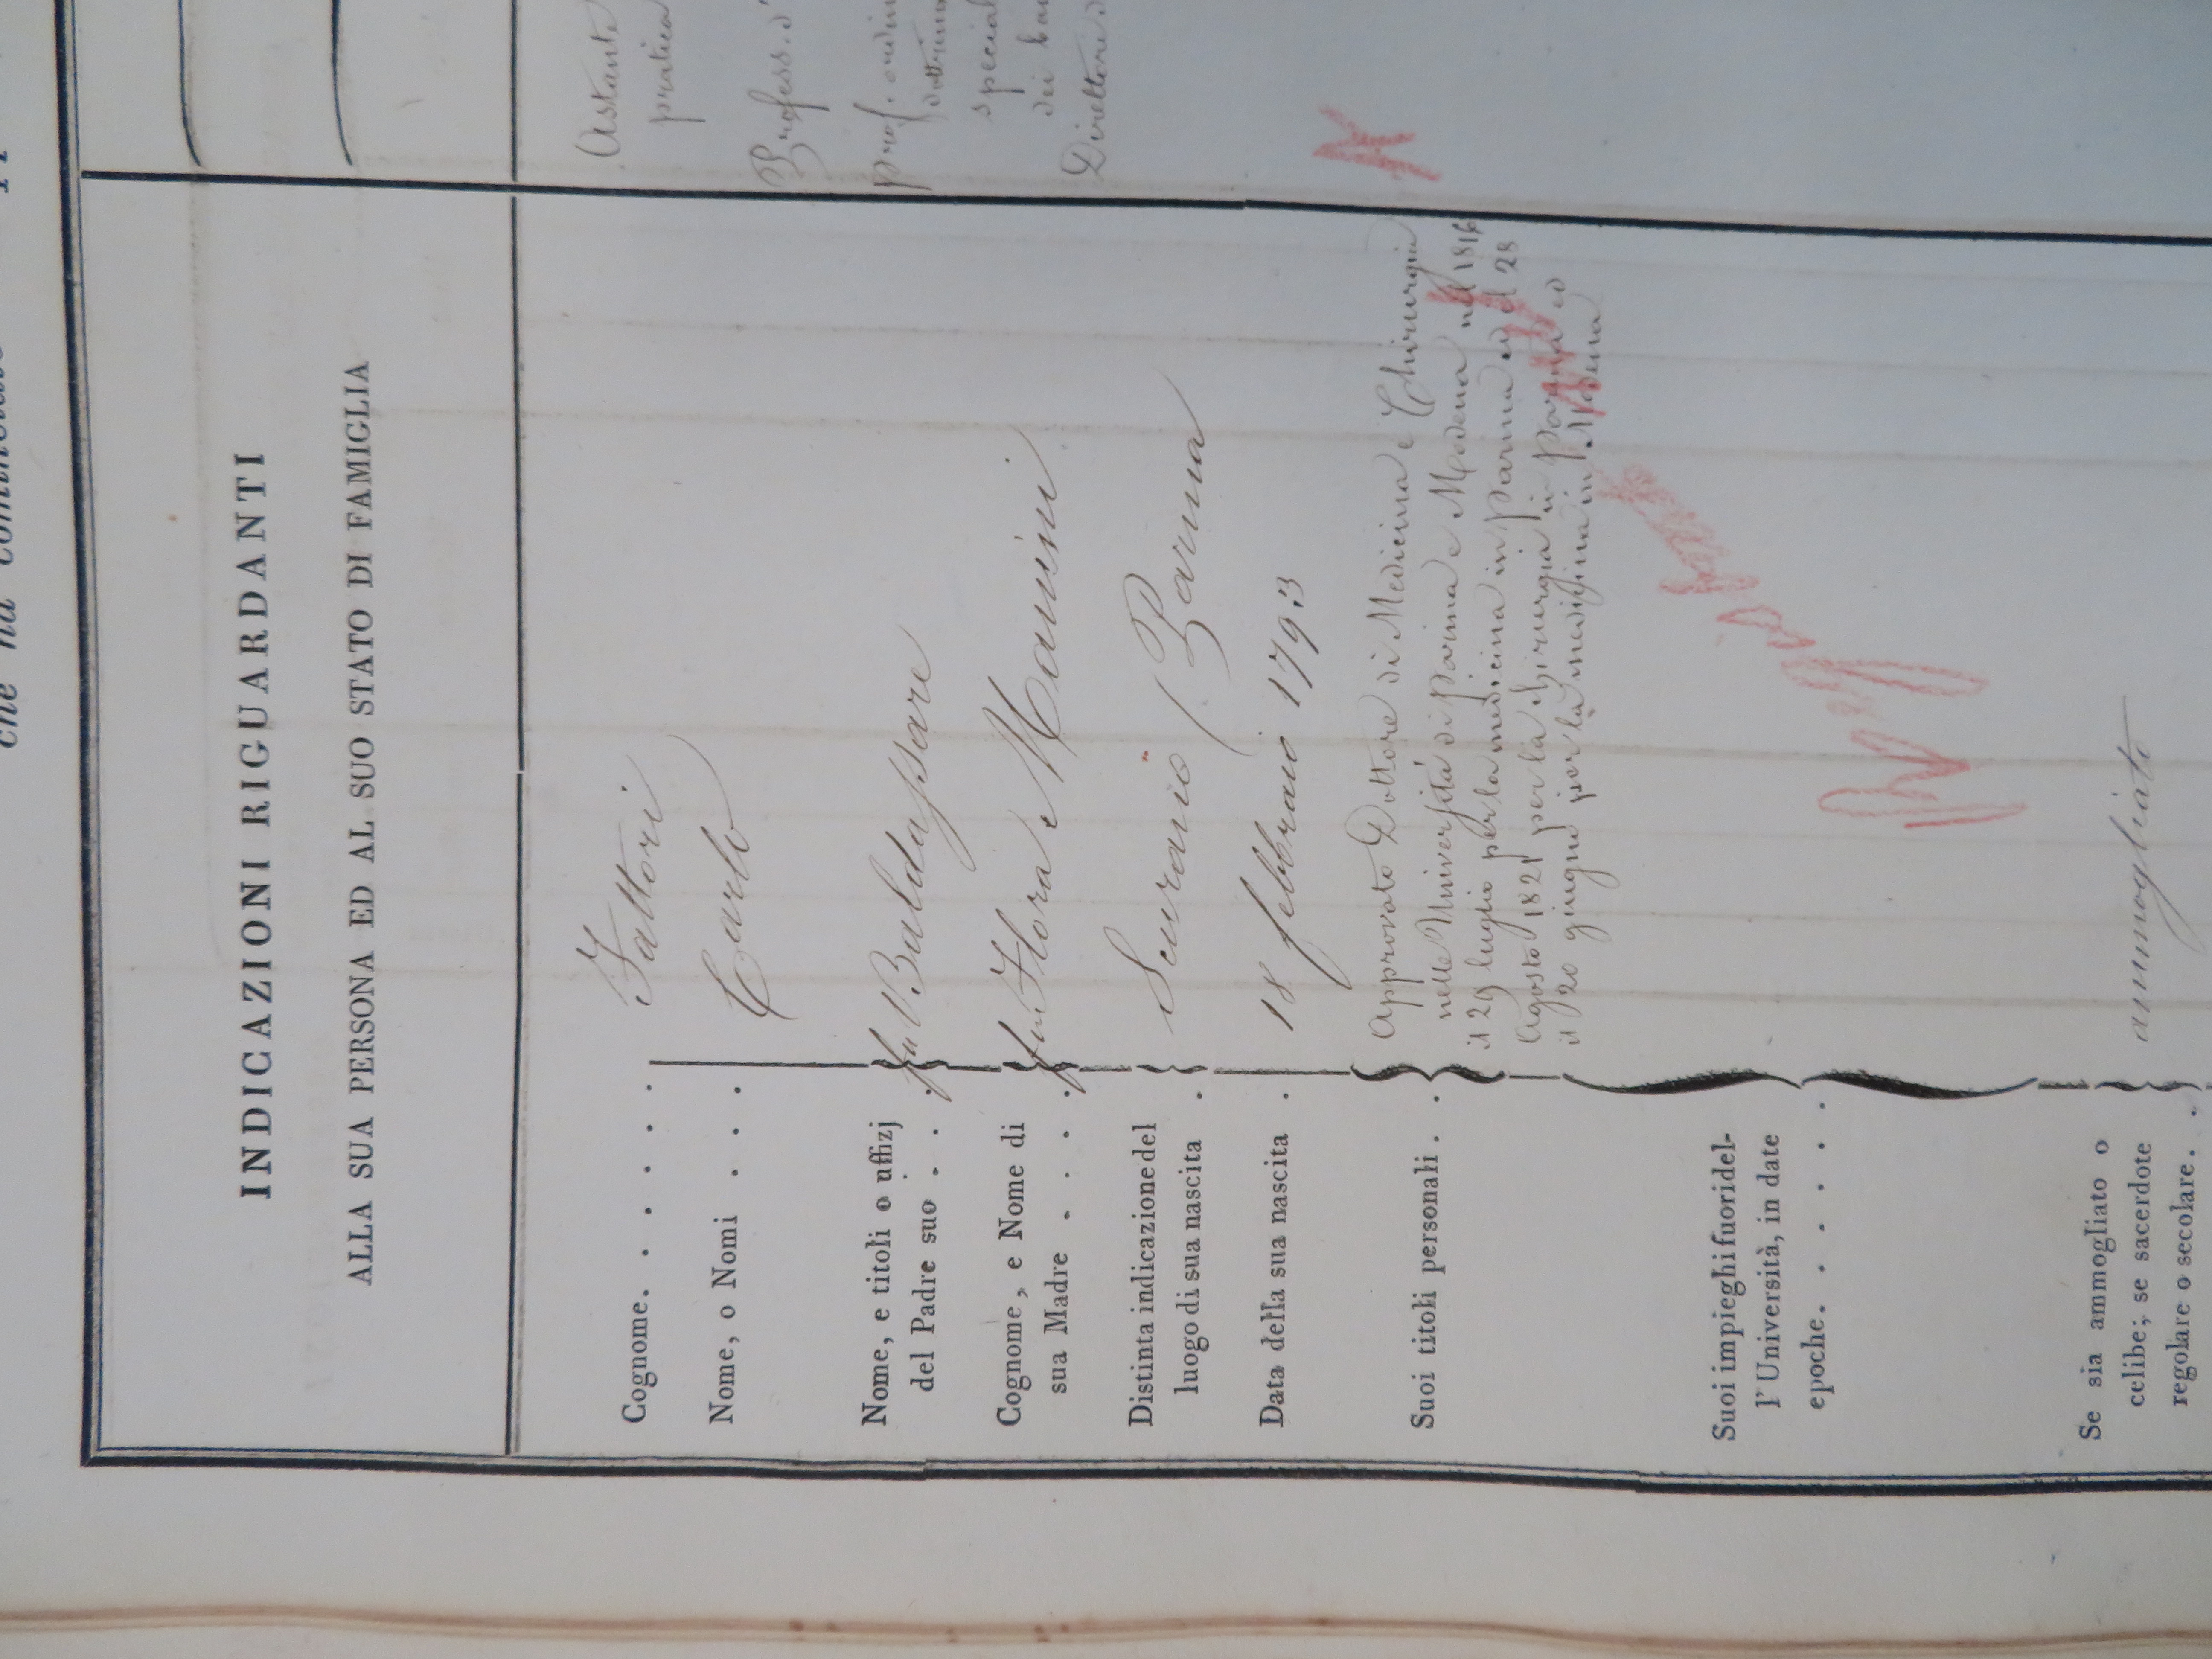 che ha
INDICAZIONI RIGUARDANTI
ALLA SUA PERSONA ED AL SUO STATO DI FAMIGLIA
Cognome. . . . . . Fattori
Nome, o Nomi . . . Carlo
Nome, e titoli o uffizj
del Padre suo . . . fu V. Baldassare
Cognome, e Nome di
sua Madre . . . . fu Flora
Distinta indicazione del
luogo di sua nascita . Scurano (Parma
Data della sua nascita . 18 febbraio 1793
Suoi titoli personali . . approvato Dottore di Medicina e Chirurgia
nelle Università di Parma e Modena nel 1816
il 29 luglio per la medicina in Parma ed il 28
Agosto 1821 per la chirurgia in Parma ed
il 20 giugno per la medicina in Modena
Suoi impieghi fuori del-
l' Università, in date
epoche. . . . . . .
Se sia ammogliato o
celibe; se sacerdote
regolare o secolare. . . ammogliato
Astante
pratica
Profess. d'
prof. ordin
dottrina
special
dei ba
Direttore